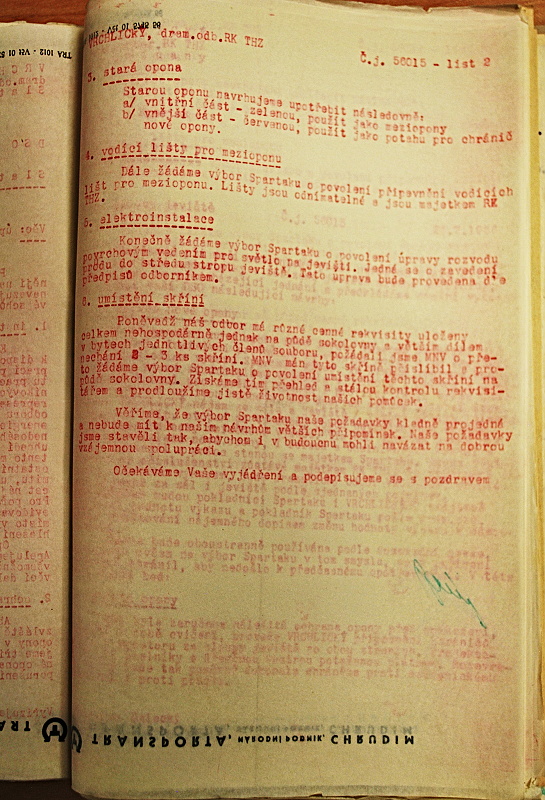 VRCHLICKÝ, dram.odb.RK THZ
Č.j. 56015 - list 2
3. stará opona
Starou oponu navrhujeme upotřebit následovně:
a/ vnitřní část - zelenou, použít jako meziopony
b/ vnější část - červenou, použít jako potahu pro chránič
nové opony.
4. vodící lišty pro mezioponu
Dále žádáme výbor Spartaku o povolení připevnění vodících
lišt pro mezioponu. Lišty jsou odnímatelné a jsou majetkem RK
THZ.
5. elektroinstalace
Konečně žádáme výbor Spartaku o povolení úpravy rozvodu
povrchovým vedením pro světlo na jevišti. Jedná se o zavedení
proudu do středu stropu jeviště. Tato úprava bude provedena dle
předpisů odborníkem.
6. umístění skříní
Poněvadž náš odbor má různé cenné rekvisity uloženy
celkem nehospodárně jednak na půdě sokolovny a větším dílem
v bytech jednotlivých členů souboru, požádali jsme MNV o pře-
nechání 2 - 3 ks skříní. MNV nám tyto skříně přislíbil a pro-
to žádáme výbor Spartaku o povolení umístění těchto skříní na
půdě sokolovny. Získáme tím přehled a stálou kontrolu rekvisi-
tářem a prodloužíme jistě životnost našich pomůcek.
Věříme, že výbor Spartaku naše požadavky kladně projedná
a nebude mít k našim návrhům větších připomínek. Naše požadavky
jsme stavěli tak, abychom i v budoucnu mohli navázat na dobrou
vzájemnou spolupráci.
Očekáváme Vaše vyjádření a podepisujeme se s pozdravem
TRANSPORTA, NÁRODNÍ PODNIK, CHRUDIM